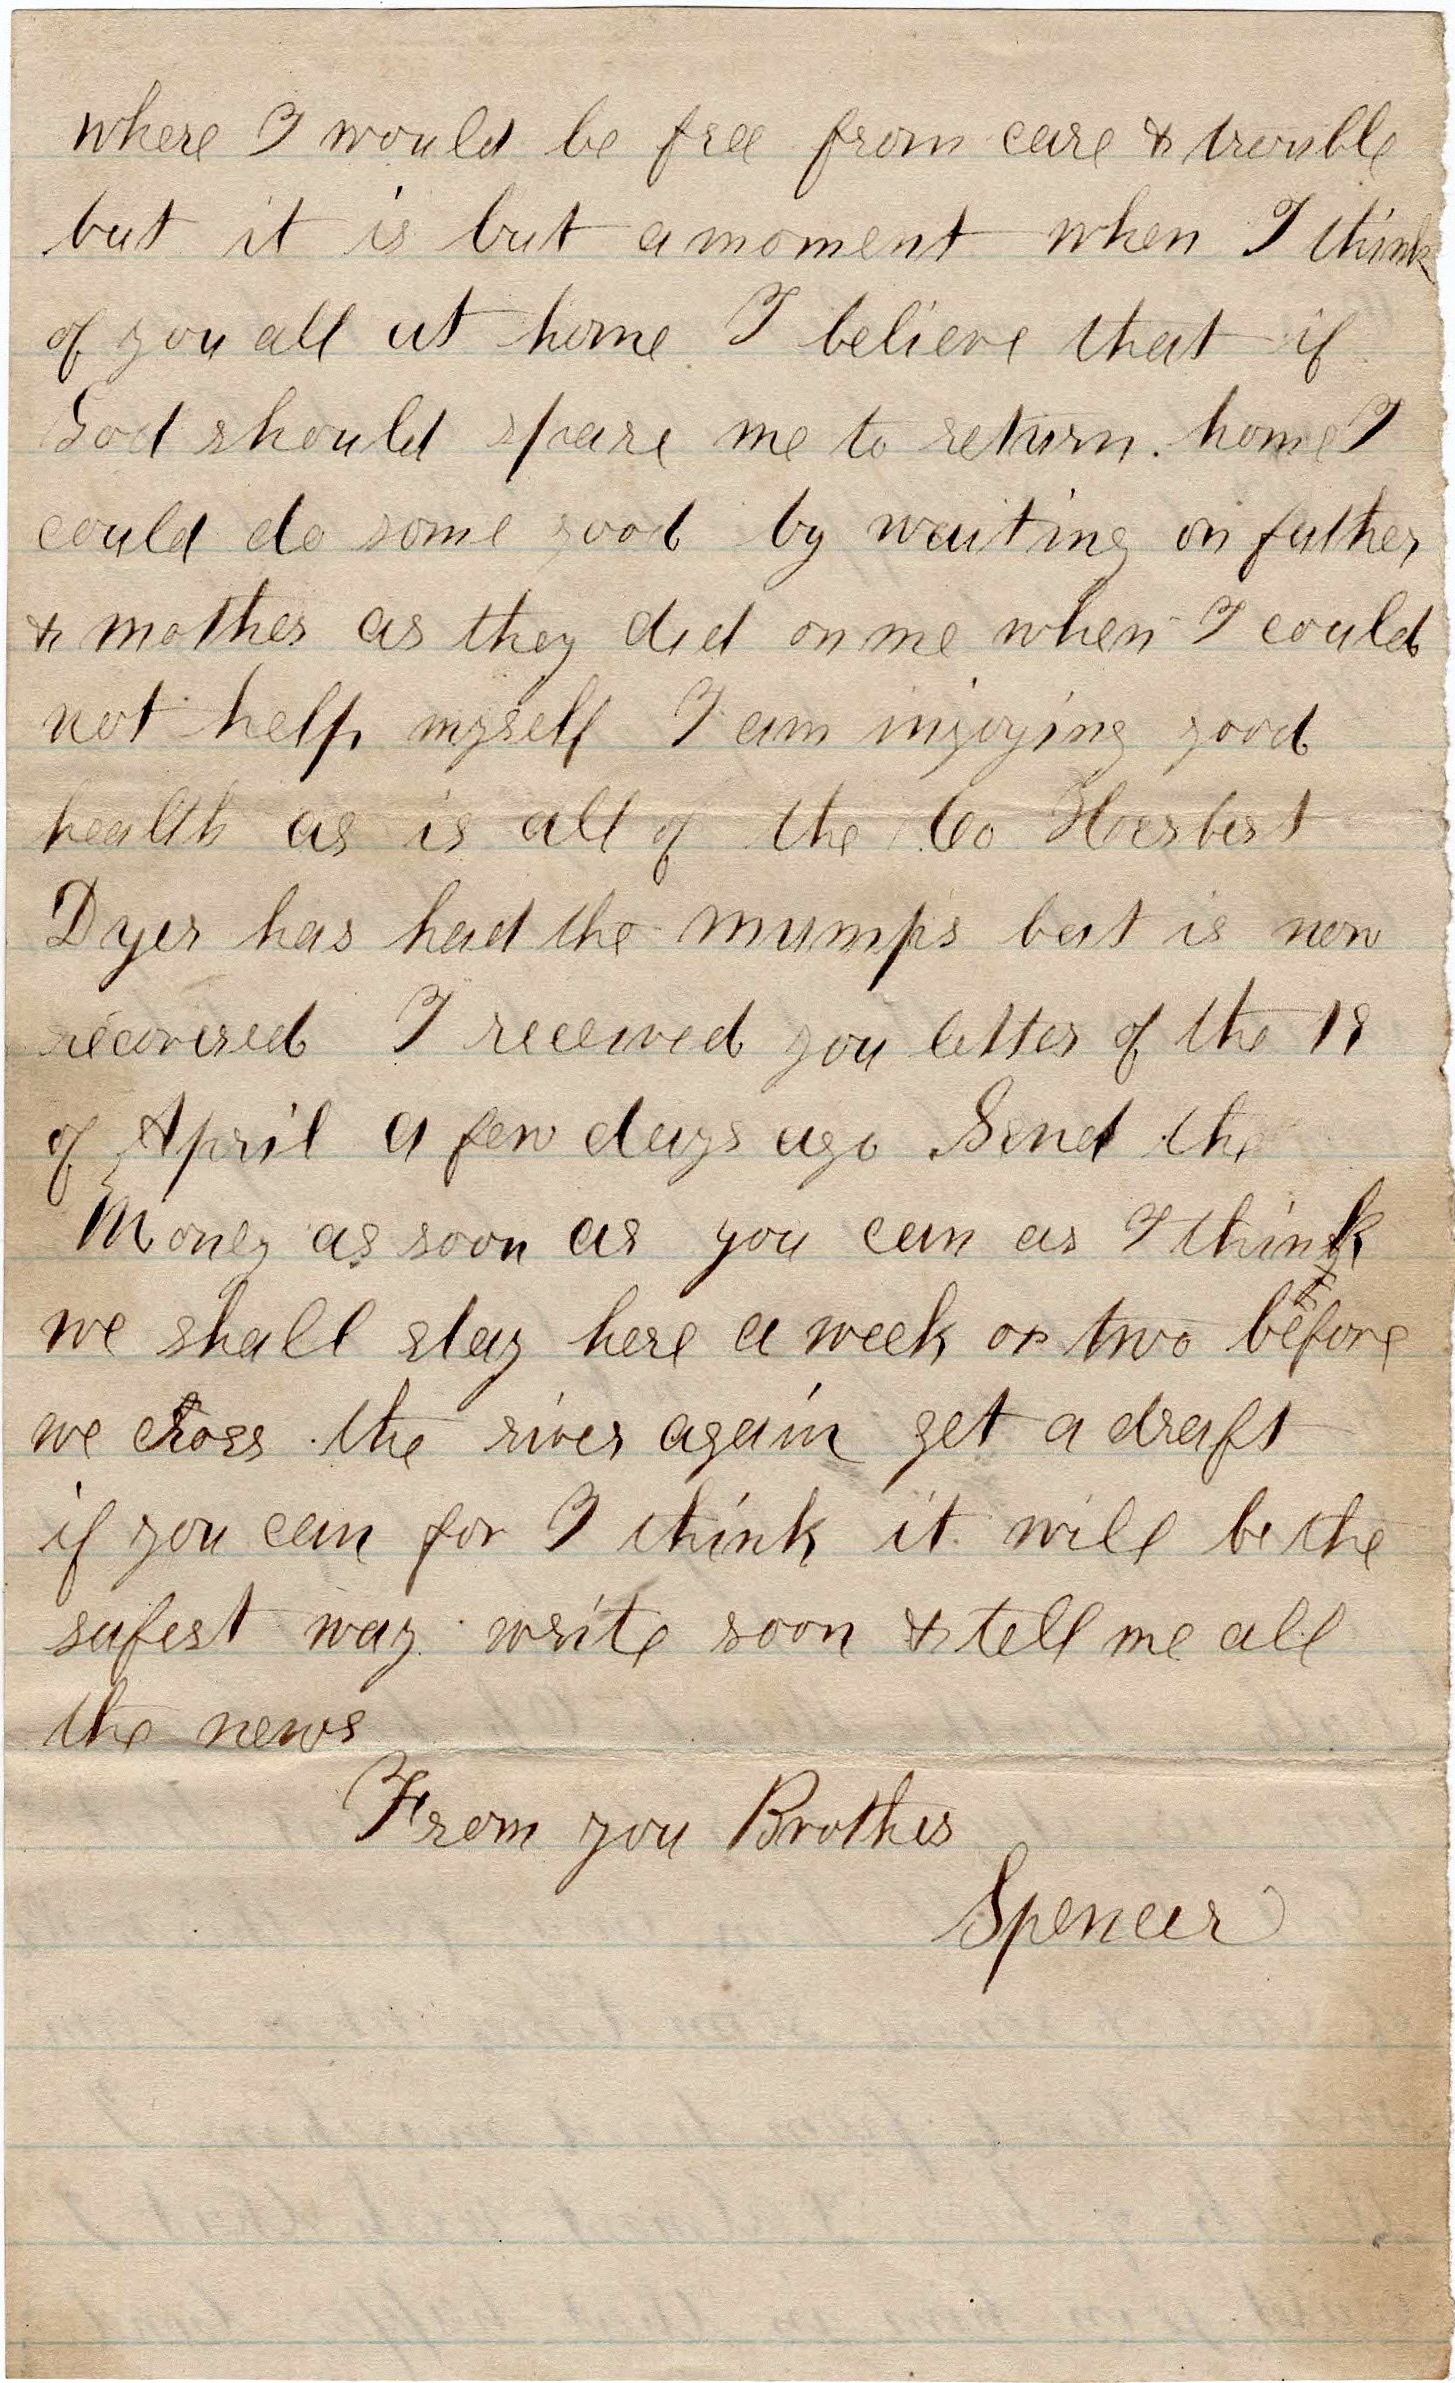 where I would be free from care & trouble
but it is but a moment when I think
of you all at home I believe that if
God should spare me to return. home I
could do some good by waiting on father
& mother as they did on me when I could
not help myself I am injoying good
health as is all of the Co Herbert
Dyer has had the mumps but is now
recovered I received you letter of the 18
of April a few days ago Send the
Money as soon as you can as I think
we shall stay here a week or two before
we cross the river again get a draft
if you can for I think it will be the
safest way write soon & tell me all
the news
From you Brother
Spencer